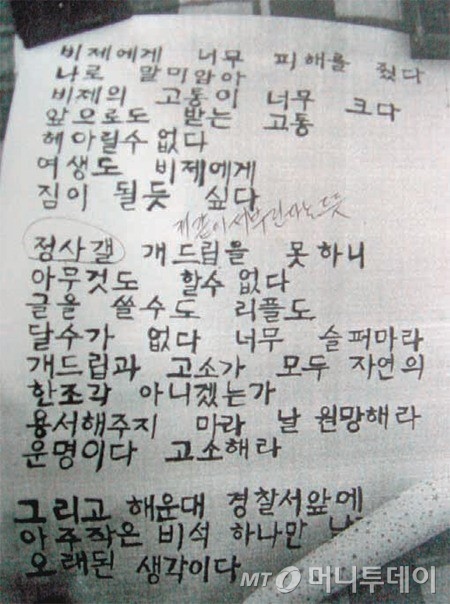 비제에게 너무 피해를 줬다
나로 말미암아
비제의 고통이 너무 크다
앞으로도 받는 고통
헤아릴수 없다
여생도 비제에게
짐이 될듯 싶다
정사갤 개드립을 못하니
아무것도 할수 없다
글을 쓸수도 리플도
달수가 없다 너무 슬퍼마라
개드립과 고소가 모두 자연의
한조각 아니겠는가
용서해주지 마라 날 원망해라
운명이다 고소해라
그리고 해운대 경찰서앞에
아주작은 비석 하나만
오래된 생각이다
MT 머니투데이